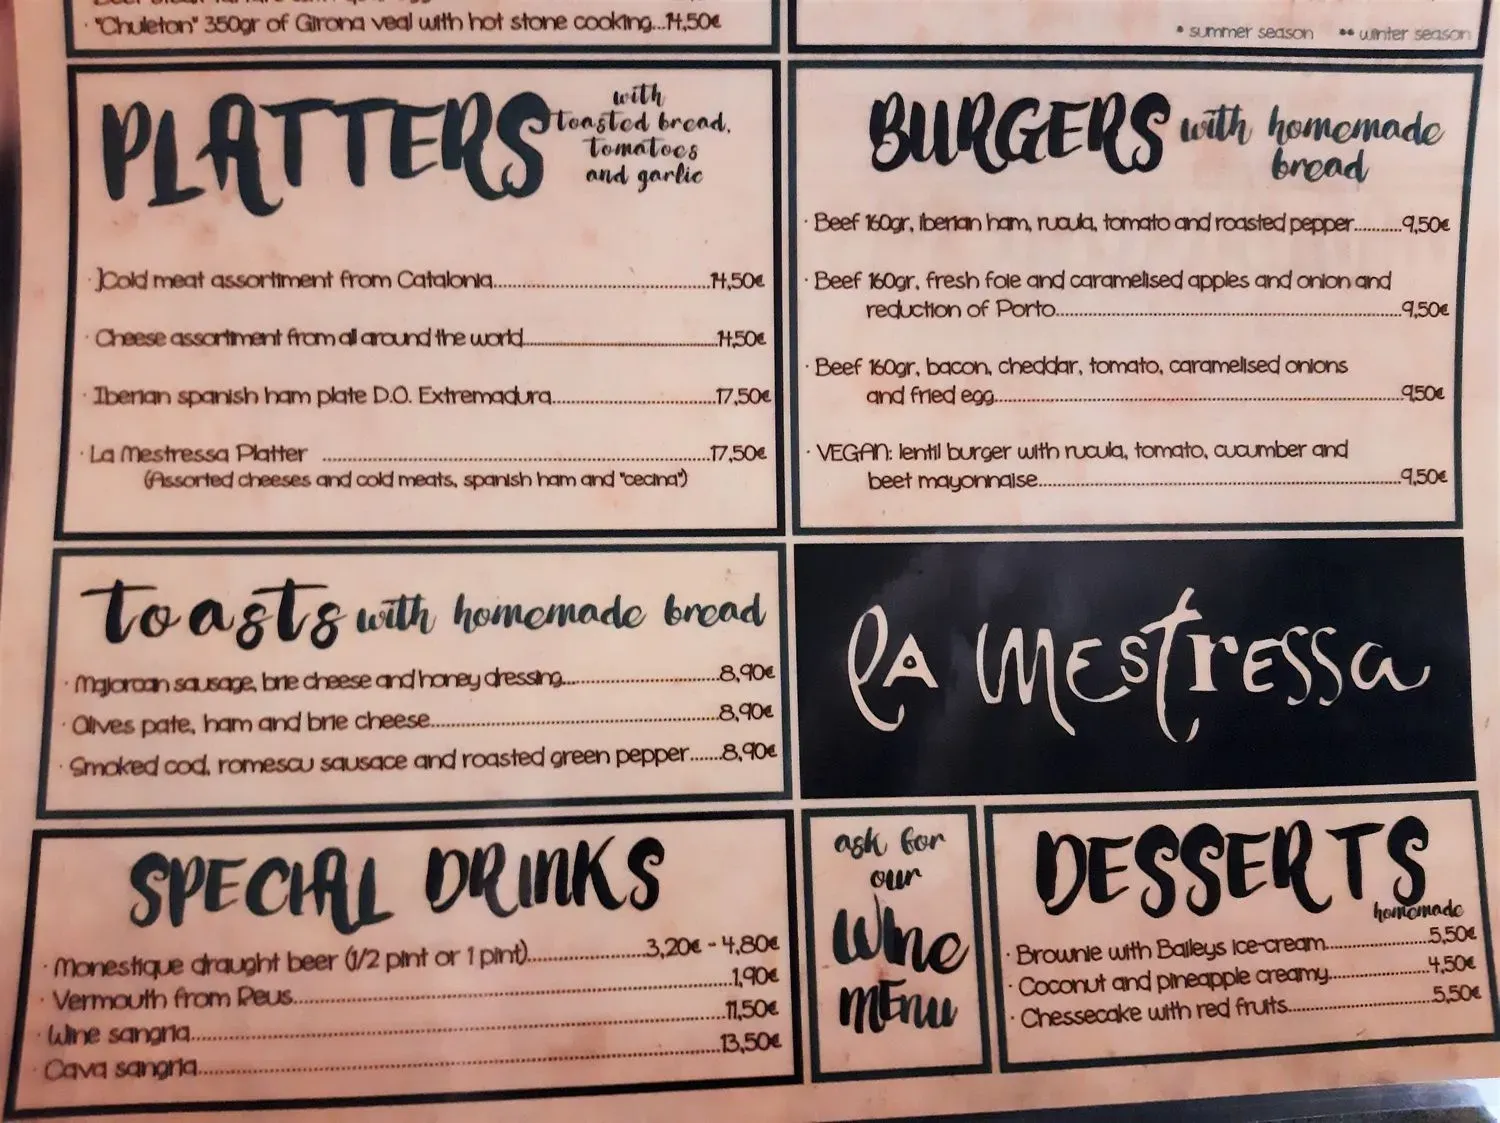 · "Chuleton" 350gr of Girona veal with hot stone cooking...14,50€
* summer season ** winter season
PLATTERS with
toasted bread,
tomatoes
and garlic
· Cold meat assortiment from Catalonia..............................14,50€
· Cheese assortiment from all around the world..............................14,50€
· Iberian spanish ham plate D.O. Extremadura..............................17,50€
· La Mestressa Platter ..............................17,50€
(Assorted cheeses and cold meats, spanish ham and "cecina")
BURGERS with homemade
bread
· Beef 160gr, iberian ham, rucula, tomato and roasted pepper..........9,50€
· Beef 160gr, fresh foie and caramelised apples and onion and
reduction of Porto..............................9,50€
· Beef 160gr, bacon, cheddar, tomato, caramelised onions
and fried egg..............................9,50€
· VEGAN: lentil burger with rucula, tomato, cucumber and
beet mayonnaise..............................9,50€
toasts with homemade bread
· Majorcan sausage, brie cheese and honey dressing..............................8,90€
· Olives pate, ham and brie cheese..............................8,90€
· Smoked cod, romescu sausace and roasted green pepper.......8,90€
La Mestressa
SPECIAL DRINKS
· Monestique draught beer (1/2 pint or 1 pint)..............................3,20€ - 4,80€
· Vermouth from Reus..............................1,90€
· Wine sangria..............................11,50€
· Cava sangria..............................13,50€
ask for
our
Wine
menu
DESSERTS
homemade
· Brownie with Baileys ice-cream..............................5,50€
· Coconut and pineapple creamy..............................4,50€
· Chessecake with red fruits..............................5,50€